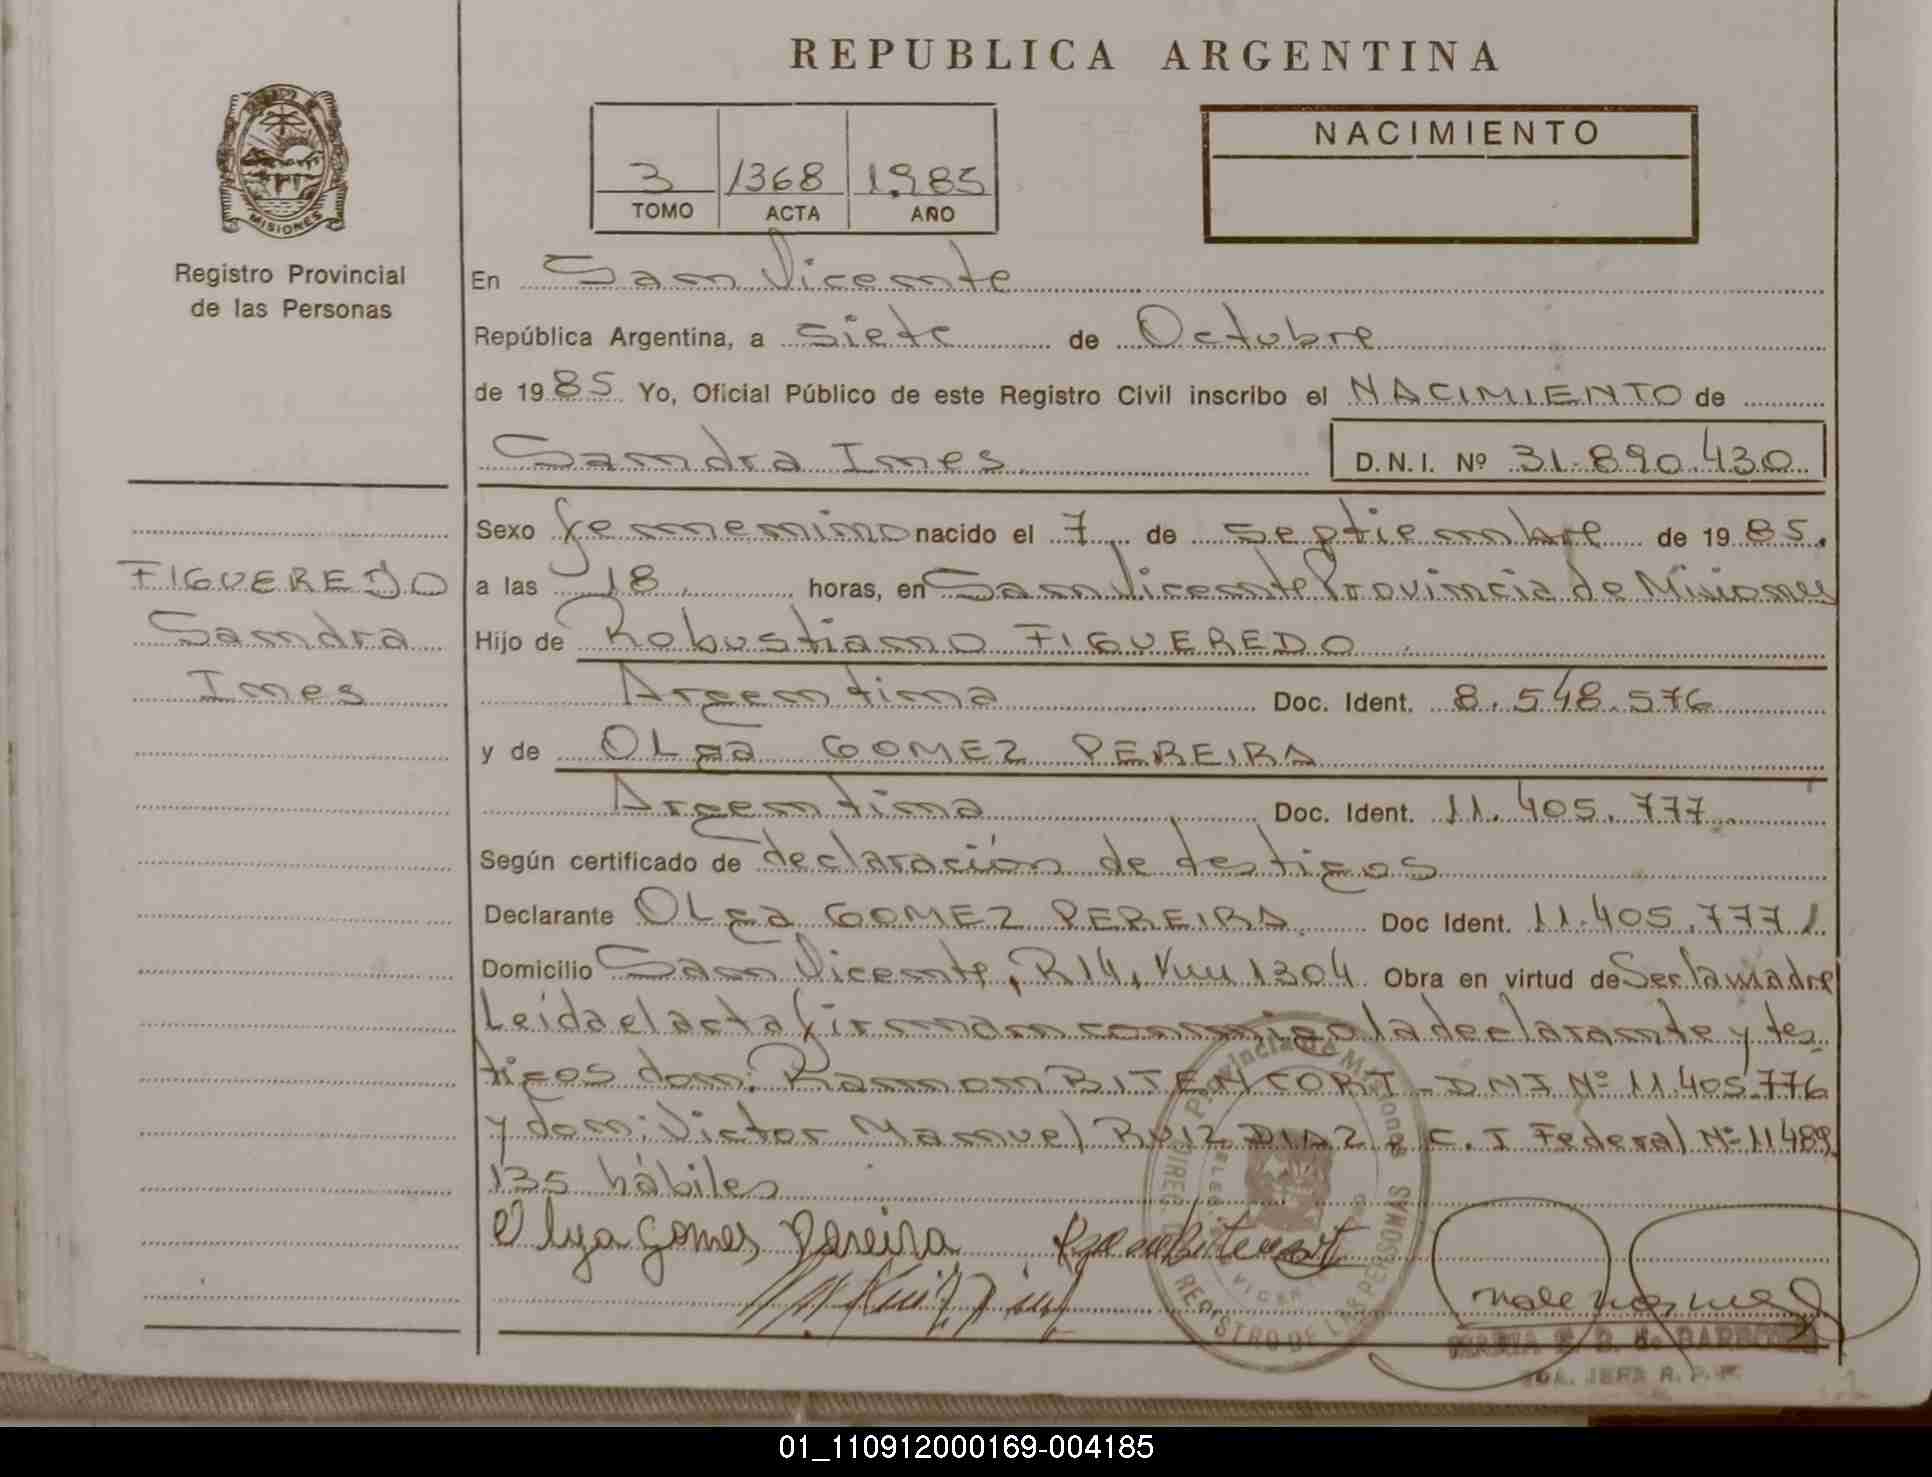 REPUBLICA ARGENTINA
MISIONES
Registro Provincial
de las Personas
3 1368 1.985
TOMO ACTA AÑO
NACIMIENTO
En San Vicente
República Argentina, a siete de Octubre
de 1985 Yo, Oficial Público de este Registro Civil inscribo el NACIMIENTO de
Sandra Ines D.N.I. Nº 31.890.430
Sexo femenino nacido el 7 de septiembre de 1985.
FIGUEREDO
Sandra
Ines
a las 18 horas, en San Vicente Provincia de Misiones
Hijo de Robustiano FIGUEREDO
Argentina Doc. Ident. 8.548.576
y de OLga GOMEZ PEREIRA
Argentina Doc. Ident. 11.405.777
Según certificado de declaración de testigos
Declarante OLga GOMEZ PEREIRA Doc Ident. 11.405.777
Domicilio San Vicente, R14, 1304 Obra en virtud de Ser la madre
Leida el acta firman conmigo la declarante y tes-
tigos don: Ramon BITENCORT - DNI Nº 11.405.776
y don: Victor Manuel RUIZ DIAZ C.I Federal Nº 11489
135 hábiles
Olga Gomes Pereira
Provincia de Misiones
REGISTRO DE LAS PERSONAS
MARIA
JEFA R.P.P.
01_110912000169-004185